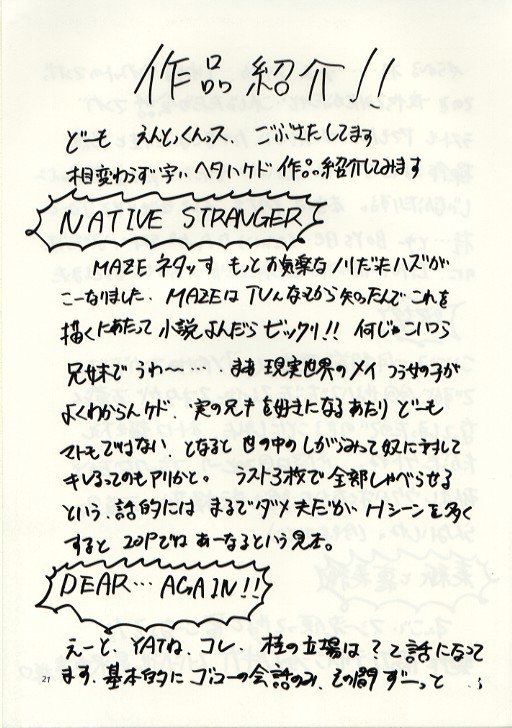 作品紹介!!
どーも えんとっくんっス、ごぶさたしてます
相変わらず字ぃヘタいケド作品紹介してみます
NATIVE STRANGER
MAZEネタっす もっとお気楽なノリだったハズが
こーなりました、MAZEはTVんなってから知ったんでこれを
描くにあたって小説よんだらビックリ!! 何じゃこいつら
兄妹でうわ〜…、まあ現実世界のメイっつう女の子が
よくわからんケド、実の兄キを好きになるあたりどーも
マトモではない、となると世の中のしがらみって奴に対して
キレるってのもアリかと。ラスト3枚で全部しゃべらせる
という、話的にはまるでダメ夫だが Hシーンを多く
すると20Pでねあーなるという見本。
DEAR… AGAIN!!
えーと、YATね、コレ、桂の立場は?て話になって
ます、基本的にゴローの会話のみ、その間ずーっと
21